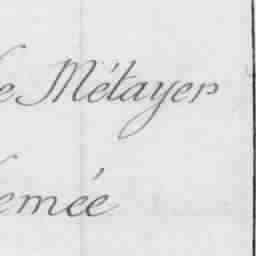 e Métayer
emée